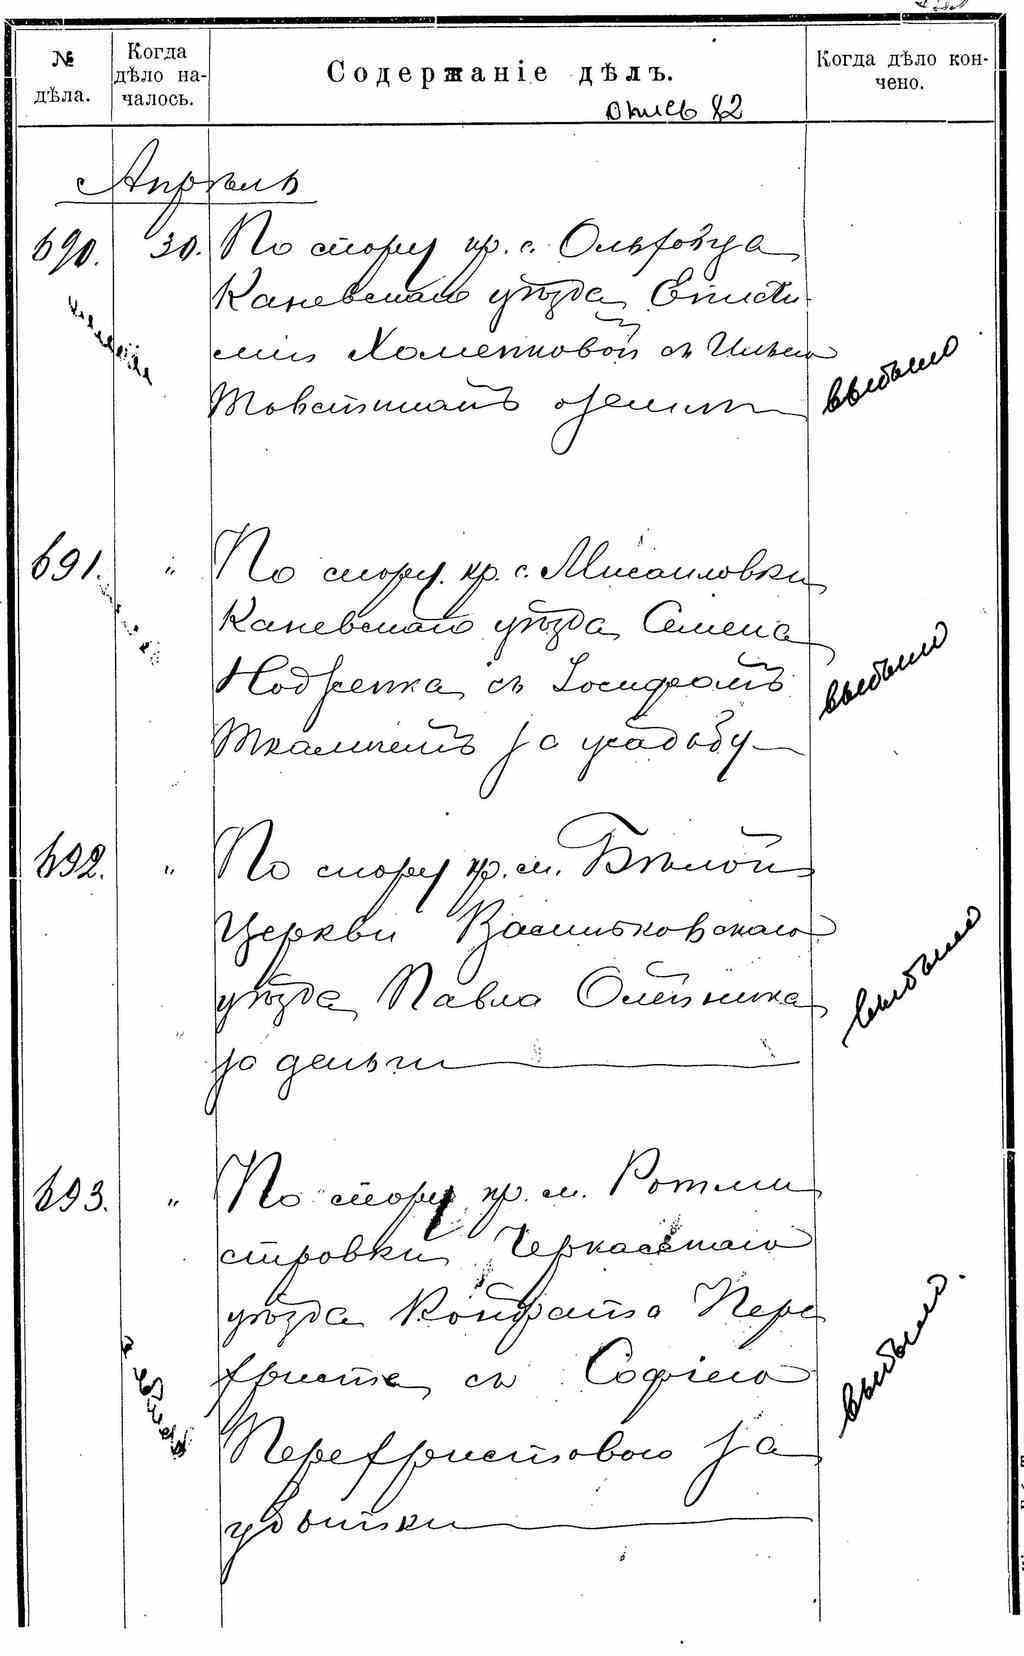 №
дѣла.
Когда
дѣло на-
чалось.
Содержаніе дѣлъ.
Когда дѣло кон-
чено.
опись 82
Апрѣль
690. 30. По спору кр. с. Ольховца
Каневскаго уѣзда Еписти-
міи Хоменковой съ Ильею
о землѣ
выбыло
691. " По спору кр. с. Мисаиловки
Каневскаго уѣзда Семена
съ Іосифомъ
Ткаличемъ за усадьбу
выбыло
692. " По спору кр. м. Бѣлой
Церкви Васильковскаго
уѣзда Павла Олейника
за деньги
выбыло
693. " По спору кр. м. Ротми
стровки Черкасскаго
уѣзда Кондрата Пере
христа съ Софіею
Перехристовою за
убытки
выбыло.